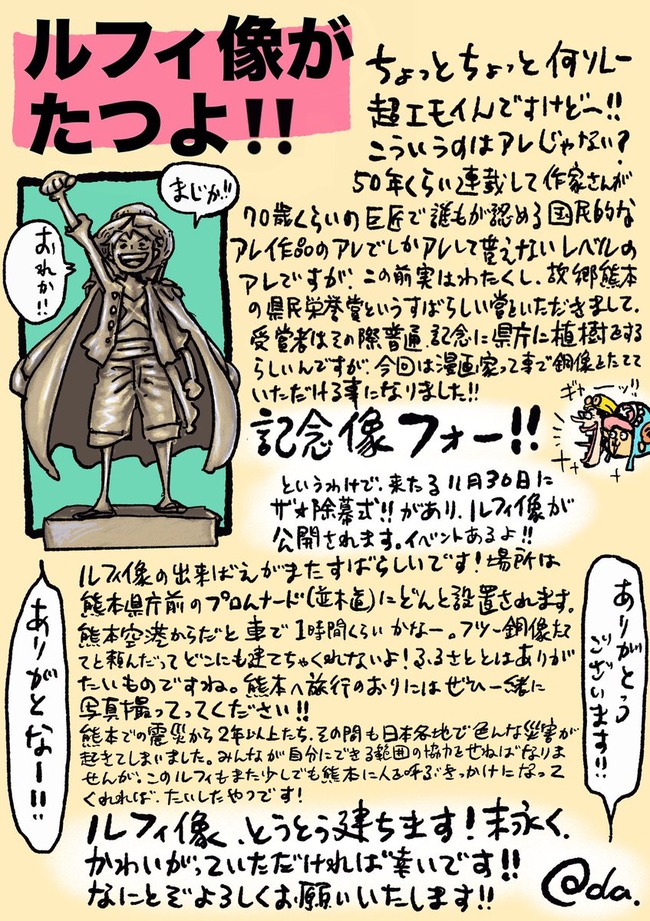 ルフィ像が
たつよ!!
ちょっとちょっと何ソレー
超エモイんですけどー!!
こういうのはアレじゃない?
50年くらい連載して作家さんが
70歳くらいの巨匠で誰もが認める国民的な
アレ作品のアレでしかアレして貰えないレベルの
アレですが、この前実はわたくし、故郷熊本
の県民栄誉賞というすばらしい賞をいただきまして、
受賞者はその際普通、記念に県庁に植樹をする
らしいんですが、今回は漫画家って事で銅像をたてて
いただける事になりました!!
まじか!!
おれか!!
記念像フォー!!
ギャーッ!!
というわけで、来たる11月30日に
ザ・除幕式!!があり、ルフィ像が
公開されます。イベントあるよ!!
ルフィ像の出来ばえがまたすばらしいです!場所は
熊本県庁前のプロムナード(並木道)にどんと設置されます。
熊本空港からだと車で1時間くらいかなー。フツー銅像たて
てと頼んだってどこにも建てちゃくれないよ!ふるさととはありが
たいものですね。熊本へ旅行のおりにはぜひ一緒に
写真撮ってってください!!
熊本での震災から2年以上たち、その間も日本各地で色んな災害が
起きてしまいました。みんなが自分にできる範囲の協力をせねばなりま
せんが、このルフィもまた少しでも熊本に人を呼ぶきっかけになって
くれれば、たいしたやつです!
ありがとなー!!
ありがとう
ございます!!
ルフィ像、とうとう建ちます!末永く、
かわいがっていただければ幸いです!!
なにとぞよろしくお願いいたします!!
@da.